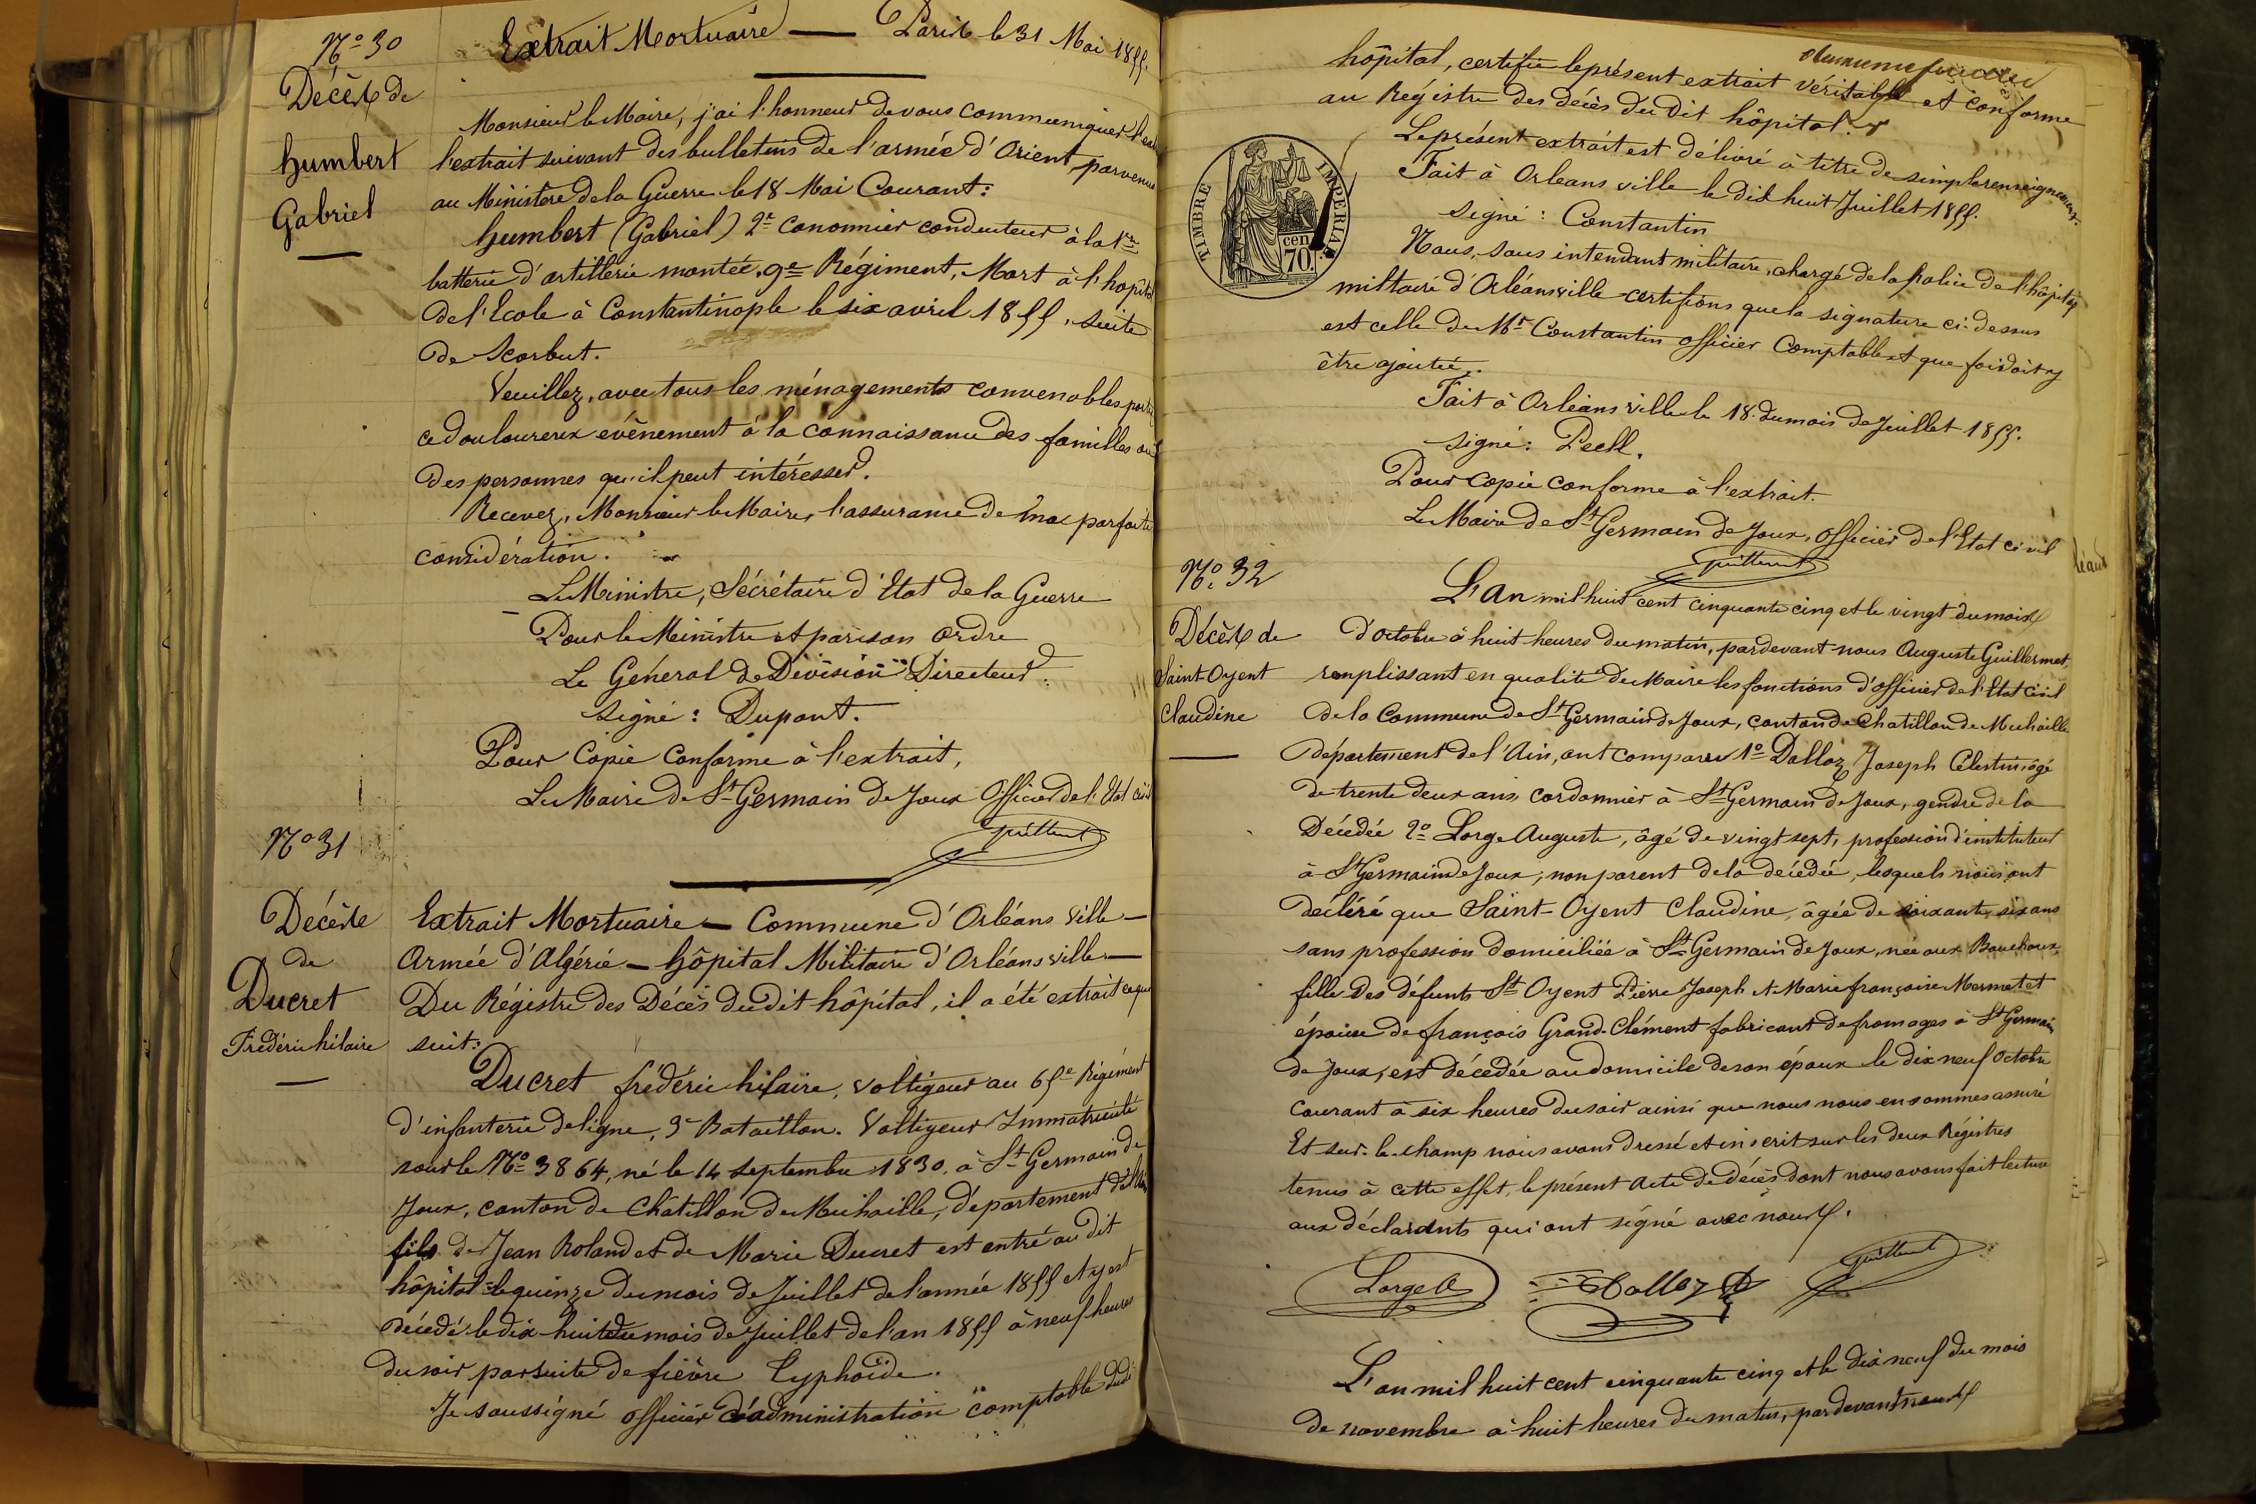 N° 30
Décès de
Humbert
Gabriel
Extrait Mortuaire — Paris le 31 Mai 1855.
Monsieur le Maire, j'ai l'honneur de vous communiquer
l'extrait suivant des bulletins de l'armée d'Orient parvenu
au Ministère de la Guerre le 18 Mai Courant :
Humbert (Gabriel) 2e canonnier conducteur à la 1re
batterie d'artillerie montée, 9e Régiment, Mort à l'hôpital
de l'Ecole à Constantinople le six avril 1855, suite
de Scorbut.
Veuillez, avec tous les ménagements convenables, porter
ce douloureux évènement à la connaissance des familles ou
des personnes qu'il peut intéresser.
Recevez, Monsieur le Maire, l'assurance de ma parfaite
considération.
Le Ministre, Sécrétaire d'Etat de la Guerre
Pour le Ministre et par son ordre
Le Général de Division Directeur.
signé : Dupont.
Pour Copie Conforme à l'extrait,
Le Maire de St Germain de Joux Officier de l'Etat civil
N° 31
Décès
de
Ducret
Frédéric hilaire
Extrait Mortuaire — Commune d'Orléans ville —
Armée d'Algérie — hôpital Militaire d'Orléansville —
Du Régistre des Décès du dit hôpital, il a été extrait ce qui
suit :
Ducret frédéric hilaire, voltigeur au 65e Régiment
d'infanterie de ligne, 3e Bataillon. Voltigeur Immatriculé
sous le N° 3864, né le 14 septembre 1830 à St Germain de
Joux, canton de Châtillon de Michaille, département de l'Ain
fils de Jean Roland et de Marie Ducret est entré au dit
hôpital le quinze du mois de Juillet de l'année 1855 et y est
décédé le dix-huit du mois de Juillet de l'an 1855 à neuf heures
du soir par suite de fièvre Typhoïde.
Je soussigné officier d'administration comptable dudit
hôpital, certifie le présent extrait véritable et conforme
au Régistre des décès du dit hôpital.
Le présent extrait est délivré à titre de simple renseignement.
Fait à Orleans ville le dix huit Juillet 1855.
signé : Constantin
TIMBRE IMPERIAL
cen
70.
Nous, sous intendant militaire, chargé de la police de l'hôpital
militaire d'Orléansville certifions que la signature ci-dessus
est celle de Mr Constantin officier Comptable et que foi doit y
être ajoutée.
Fait à Orléans ville le 18 du mois de Juillet 1855.
signé :
Pour Copie conforme à l'extrait.
Le Maire de St Germain de Joux, officier de l'Etat civil
N° 32
Décès de
Saint-Oyent
Claudine
L'an mil huit cent cinquante cinq et le vingt du mois
d'octobre à huit heures du matin, pardevant nous Auguste Guillermet,
remplissant en qualité de Maire les fonctions d'officier de l'Etat civil
de la Commune de St Germain de Joux, canton de Chatillon de Michaille
département de l'Ain, ont comparu 1° Dalloz Joseph Célestin, âgé
de trente deux ans, cordonnier à St Germain de Joux, gendre de la
Décédée 2° Lorge Auguste, âgé de vingt sept, profession d'instituteur
à St Germain de Joux, non parent de la décédée, lesquels nous ont
décléré que Saint-Oyent Claudine, âgée de soixante six ans
sans profession domiciliée à St Germain de Joux, née aux Bouchoux,
fille des défunts St Oyent Pierre Joseph et Marie françoise Mermet et
épouse de françois Grand-Clément fabricant de fromages à St Germain
de Joux, est décédée au domicile de son époux le dix neuf Octobre
courant à six heures du soir ainsi que nous nous en sommes assuré
Et sur-le-champ nous avons dressé et inscrit sur les deux Régistres
tenus à cette effet, le présent acte de décès dont nous avons fait lecture
aux déclarants qui ont signé avec nous.
Lorge A Dalloz
L'an mil huit cent cinquante cinq et le dix neuf du mois
de novembre à huit heures du matin, pardevant nous